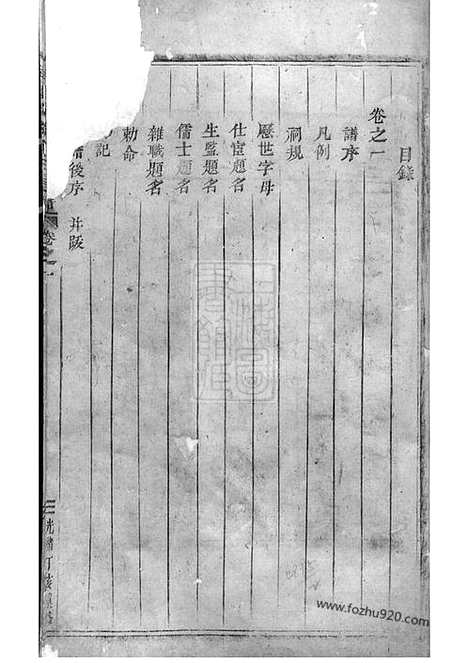 目錄
卷之一
譜序
凡例
祠規
歷世字母
仕宦題名
生監題名
儒士題名
雜職題名
勅命
記
後序 并跋
卷之一
光緒丁
www.fozhu920.com